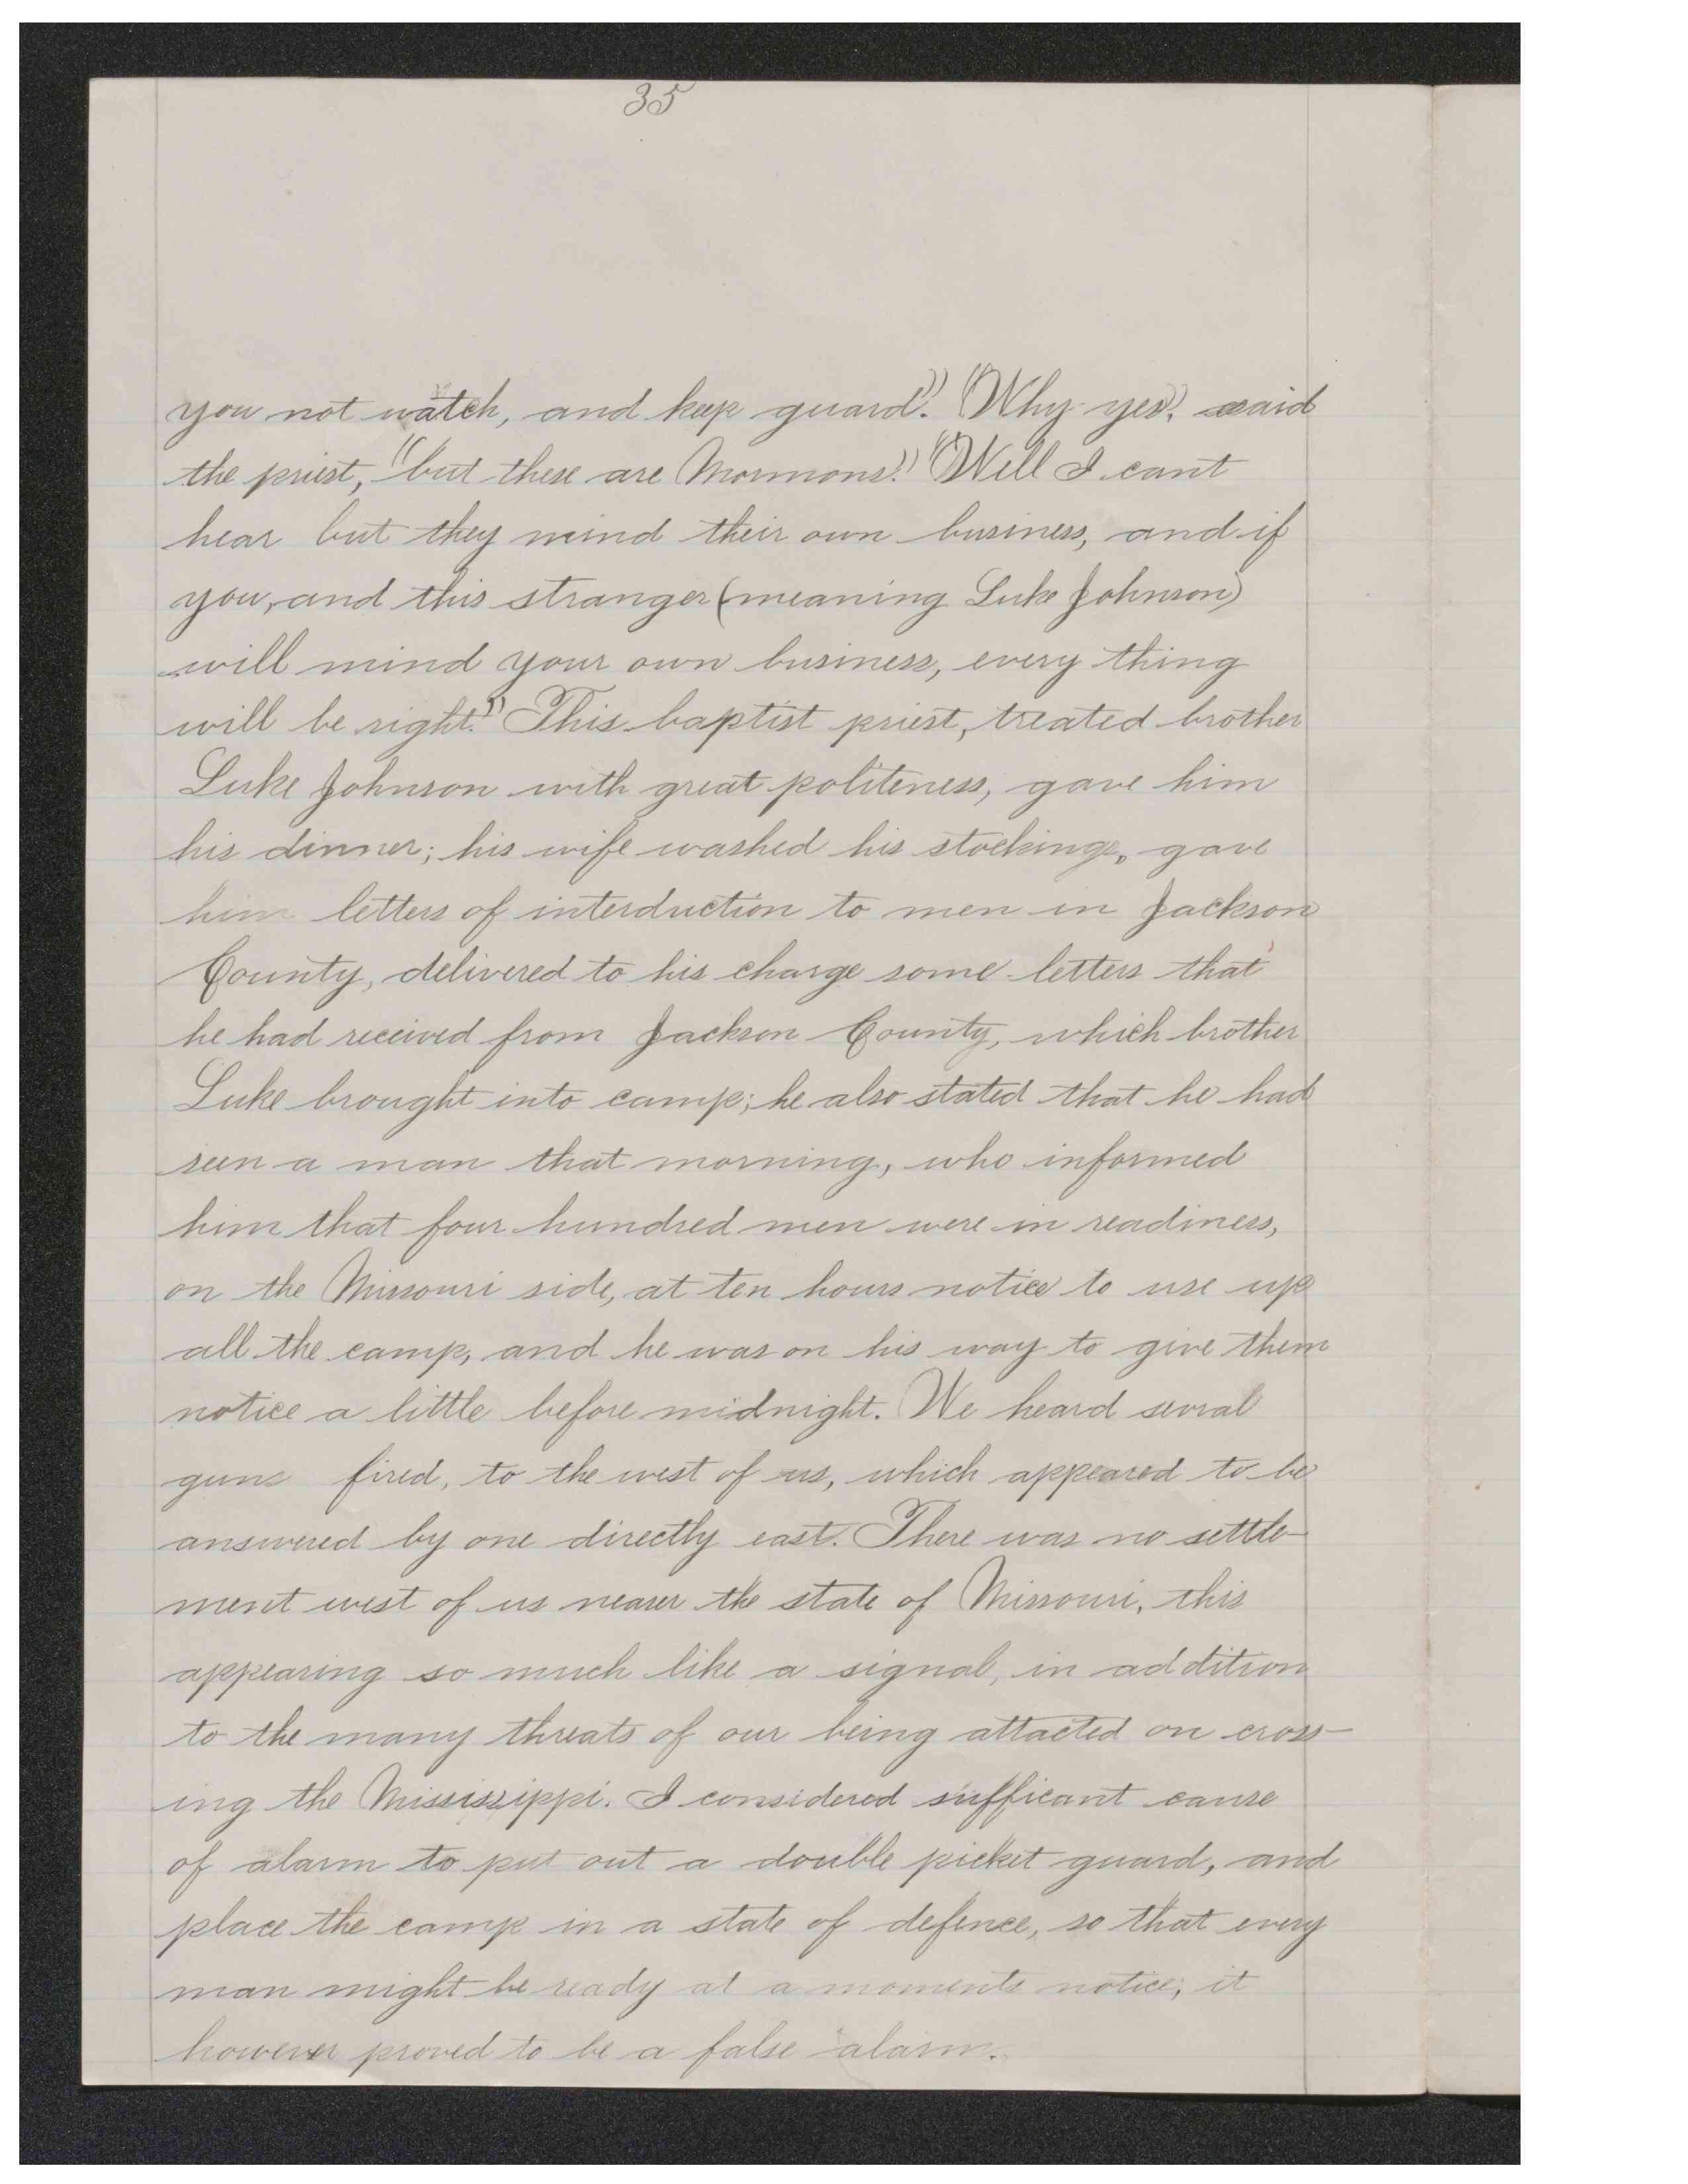 35
you not watch, and keep guard." "Why yes", said
the priest, "but these are Mormons." "Well I cant
hear but they mind their own business, and if
you, and this stranger (meaning Luke Johnson)
will mind your own business, every thing
will be right." This baptist priest, treated brother
Luke Johnson with great politeness, gave him
his dinner; his wife washed his stockings, gave
him letters of interduction to men in Jackson
County, delivered to his charge some letters that
he had received from Jackson County, which brother
Luke brought into camp; he also stated that he had
seen a man that morning, who informed
him that four hundred men were in readiness,
on the Missouri side, at ten hours notice to use up
all the camp, and he was on his way to give them
notice a little before midnight. We heard sevral
guns fired, to the west of us, which appeared to be
answered by one directly east. There was no settle-
ment west of us nearer the state of Missouri, this
appearing so much like a signal, in addition
to the many threats of our being attacted on cross-
ing the Mississippi. I considered sufficant cause
of alarm to put out a double picket guard, and
place the camp in a state of defence, so that every
man might be ready at a moments notice; it
however proved to be a false alarm.